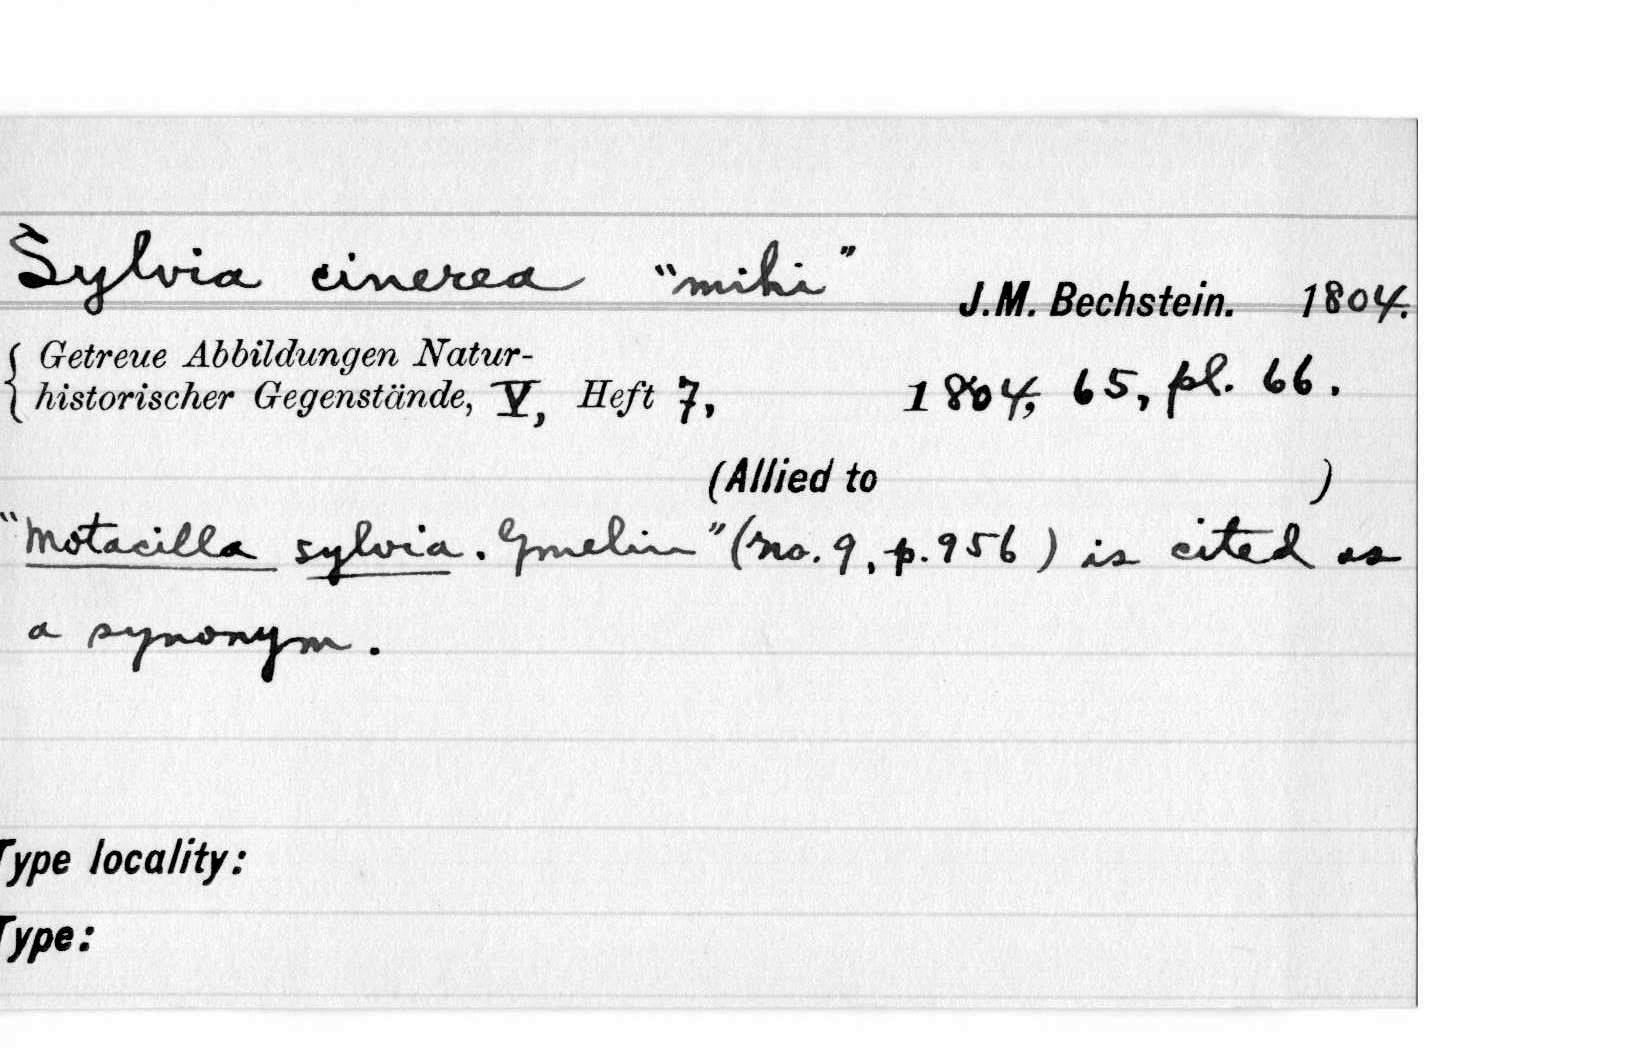 Sylvia cinerea "mihi" J.M. Bechstein. 1804.
Getreue Abbildungen Natur-
historischer Gegenstände, V, Heft 7, 1804, 65, pl. 66.
(Allied to )
"Motacilla sylvia. Gmelin" (no. 9, p. 956) is cited as
a synonym.
Type locality:
Type: